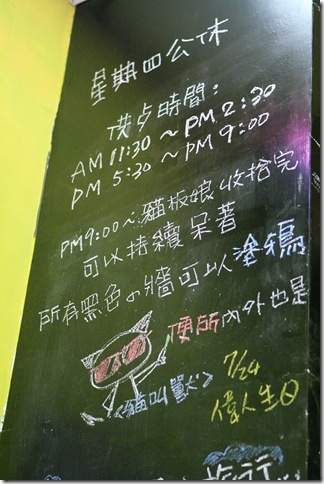 星期四公休
供歺時間:
AM 11:30~PM 2:30
PM 5:30~PM 9:00
PM9:00~貓板娘收拾完
可以持續呆著
所有黑色の牆可以塗鴉
便所內外也是
<貓叫獸>
7/24
偉人生日
旅行